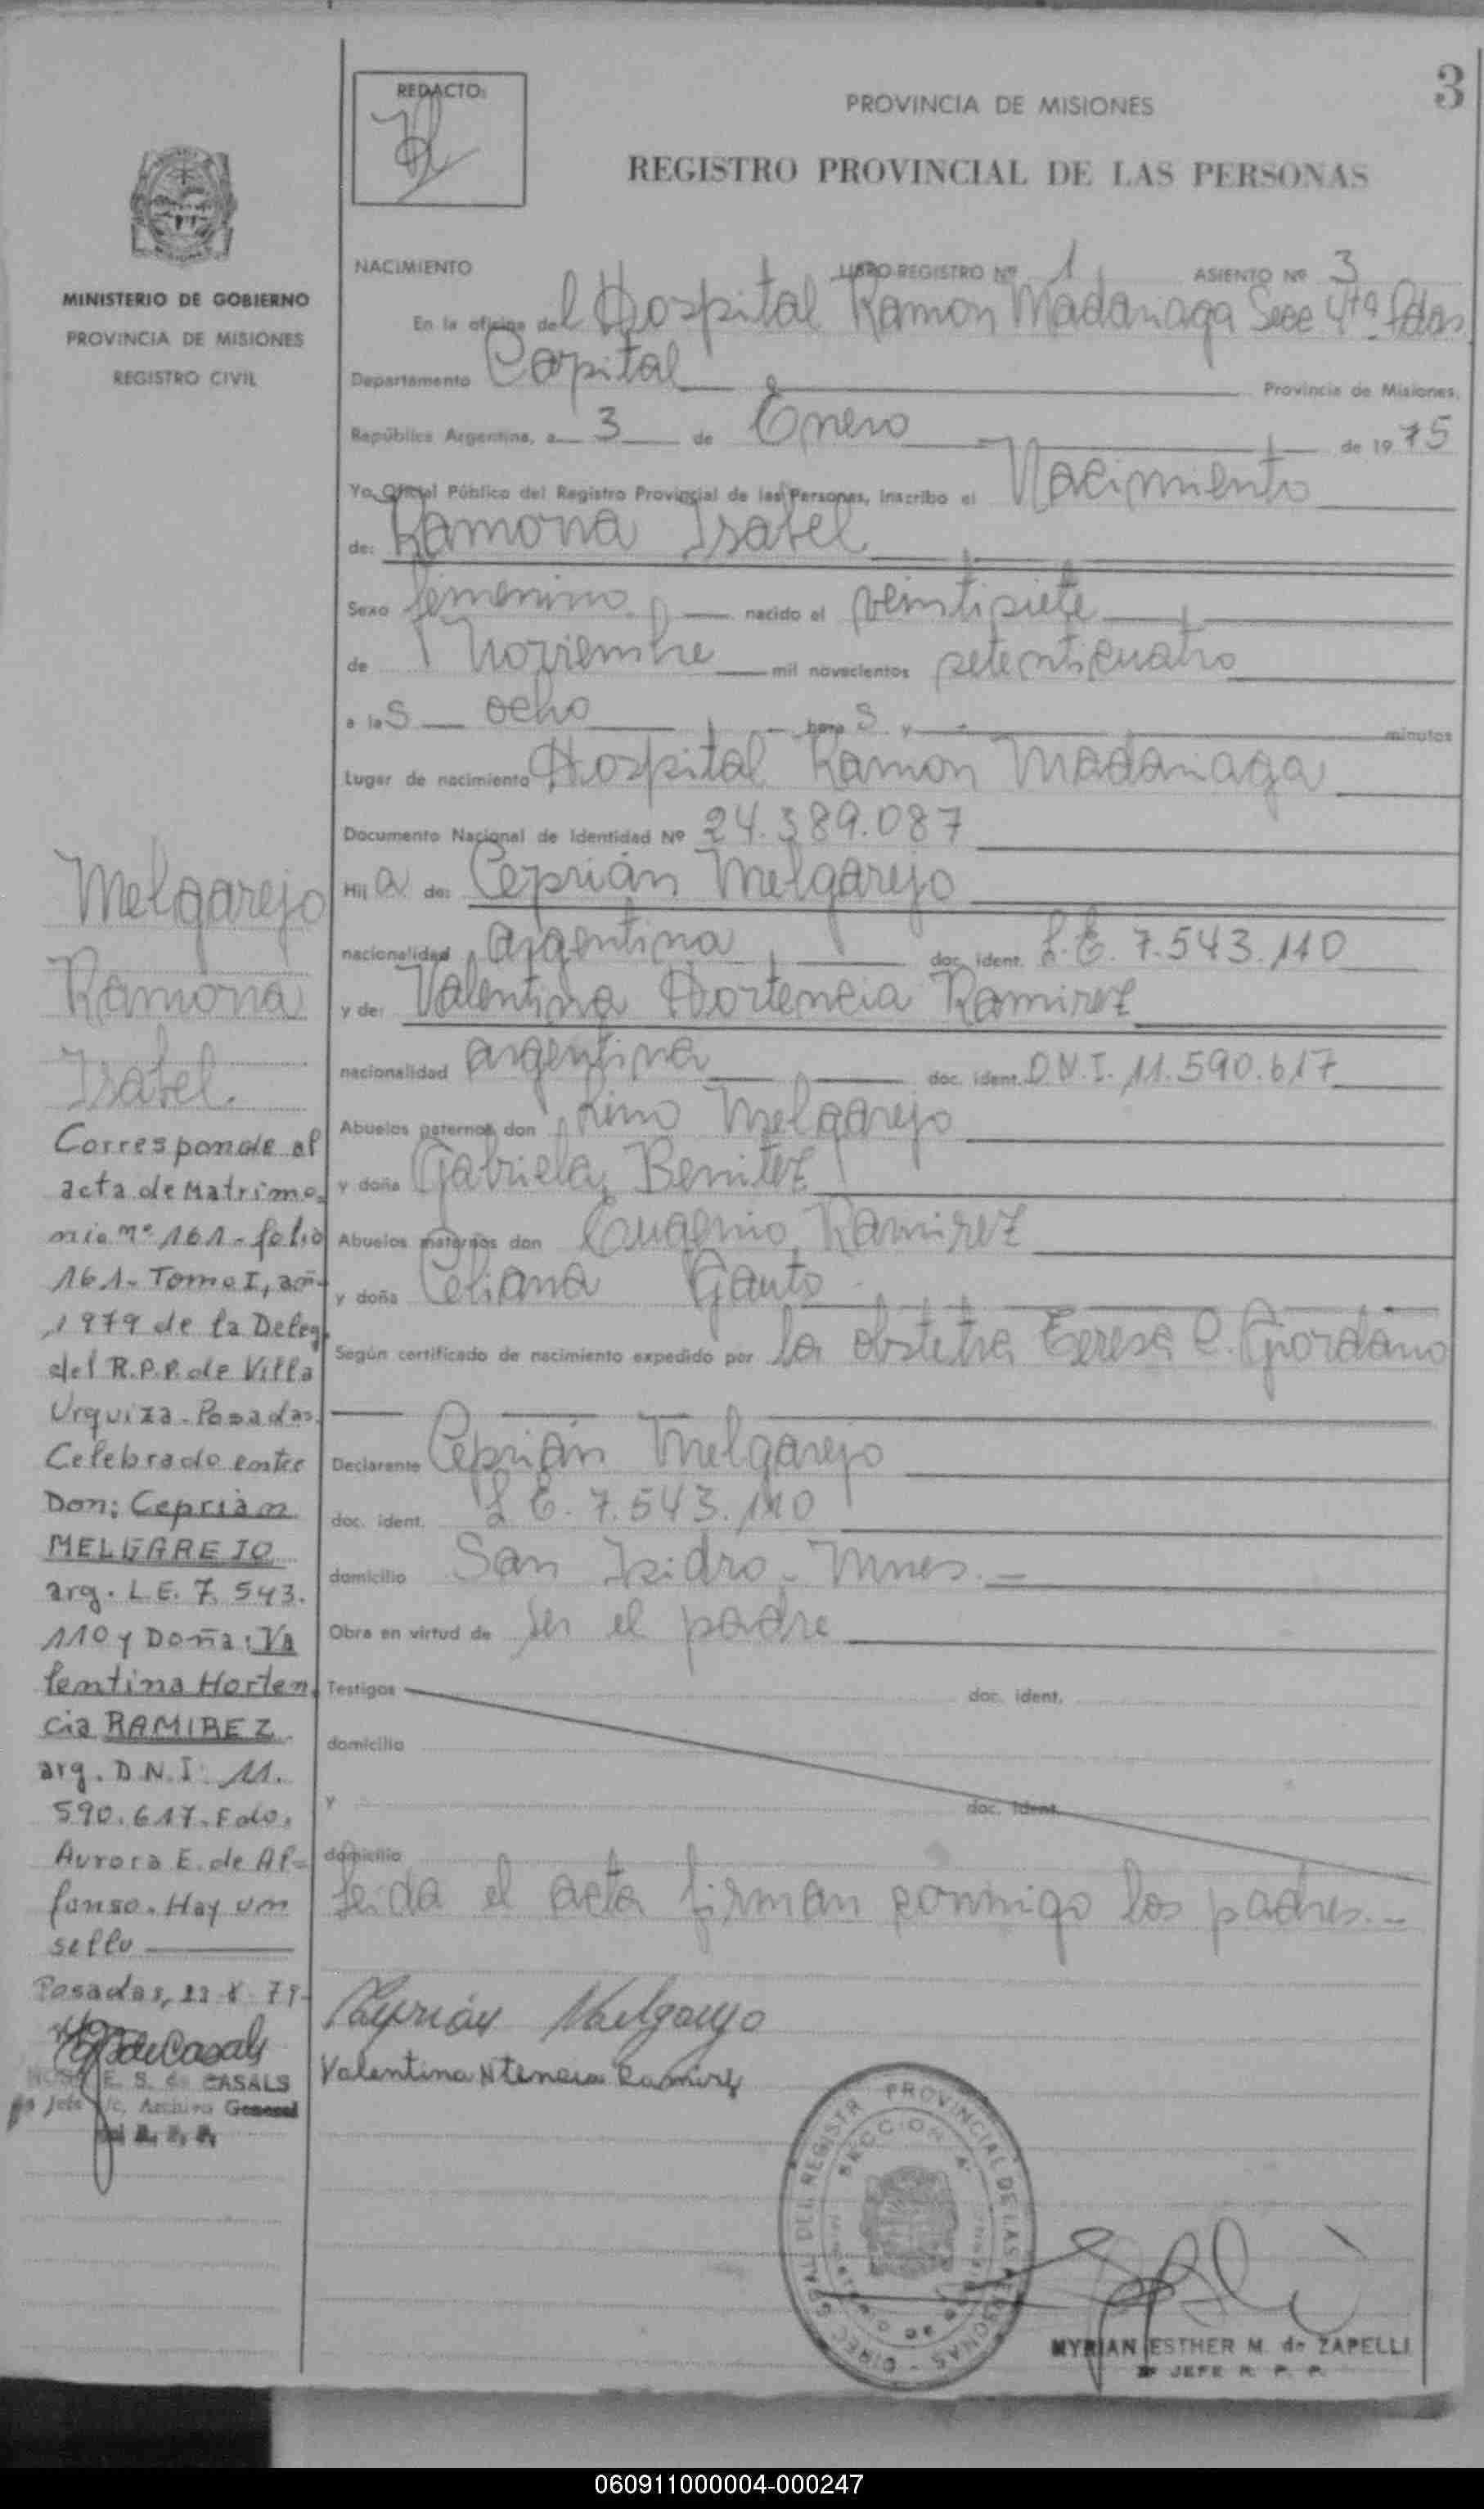 3
REDACTO:
PROVINCIA DE MISIONES
REGISTRO PROVINCIAL DE LAS PERSONAS
NACIMIENTO LIBRO REGISTRO Nº 1 ASIENTO Nº 3
En la oficina del Hospital Ramon Madariaga Secc 4ta Pdas
Departamento Capital Provincia de Misiones,
República Argentina, a 3 de Enero de 1975
Yo, Oficial Público del Registro Provincial de las Personas, inscribo el Nacimiento
de: Ramona Isabel
Sexo femenino nacido el veintisiete
de Noviembre mil novecientos setenticuatro
a las ocho horas y minutos
Lugar de nacimiento Hospital Ramon Madariaga
Documento Nacional de Identidad Nº 24.389.087
Hija de: Ceprián Melgarejo
nacionalidad argentina doc. ident. L.E. 7.543.110
y de: Valentina Hortencia Ramirez
nacionalidad argentina doc. ident. D.N.I. 11.590.617
Abuelos paternos don Lino Melgarejo
y doña Gabriela Benitez
Abuelos maternos don Eugenio Ramirez
y doña Celiana Gauto
Según certificado de nacimiento expedido por la obstetra Teresa C. Giordano
Declarante Ceprián Melgarejo
doc. ident. L.E. 7.543.110
domicilio San Isidro - Mnes. -
Obra en virtud de ser el padre
Testigos doc. ident.
domicilio
y doc. ident.
domicilio
Leida el acta firman conmigo los padres. -
Ceprián Melgarejo
Valentina Htencia Ramirez
DIREC. GRAL. DEL REGISTR PROVINCIAL DE LAS PERSONAS
SECCION 4ª
MYRIAN ESTHER M. de ZAPELLI
JEFE R. P. P.
MINISTERIO DE GOBIERNO
PROVINCIA DE MISIONES
REGISTRO CIVIL
Melgarejo
Ramona
Isabel.
Corresponde al
acta de Matrimo
nio nº 161 - folio
161 - Tomo I, año
1979 de la Deleg.
del R.P.P. de Villa
Urquiza - Posadas.
Celebrado entre
Don: Ceprián
MELGAREJO
arg. L.E. 7.543.
110 y Doña: Va
lentina Horten
cia RAMIREZ
arg. D.N.I. 11.
590.617. Fdo.
Aurora E. de Al=
fonso. Hay un
sello
Posadas,
E. S. de CASALS
Jefe c/c. Archivo General
del R. P. P.
060911000004-000247